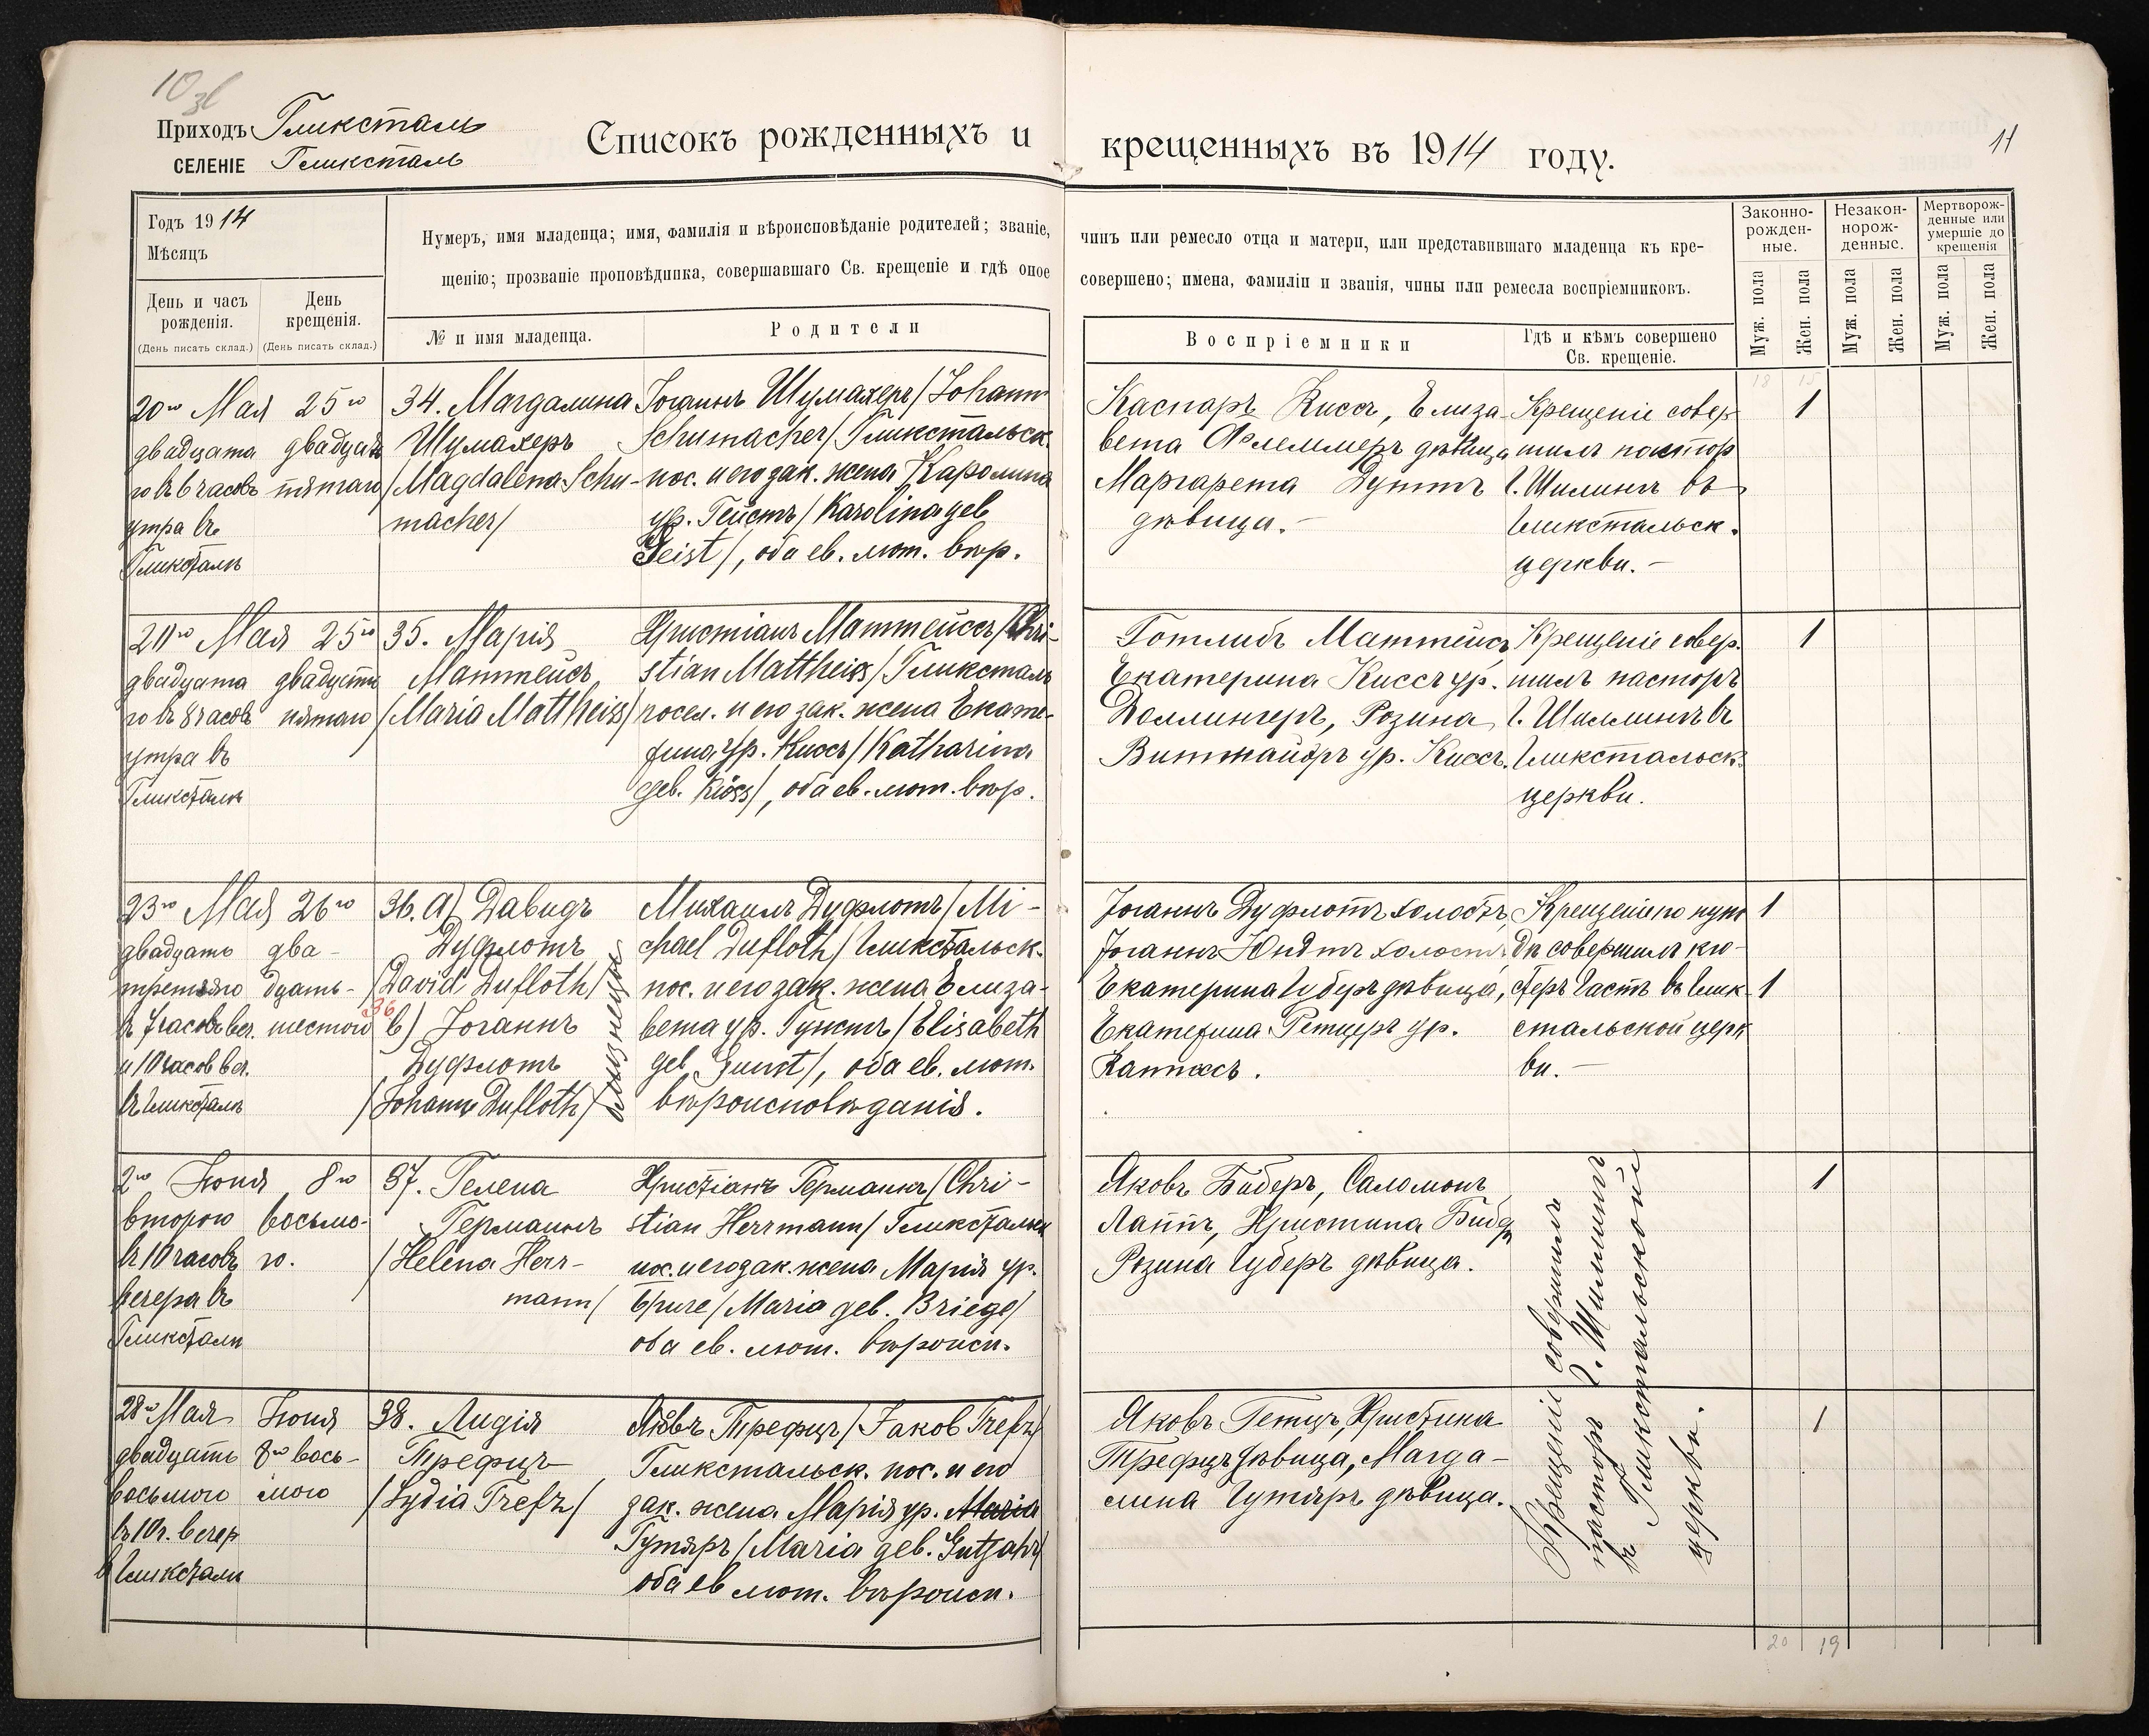 10
Приходъ Гликсталь
СЕЛЕНІЕ Гликсталь
Списокъ рожденныхъ и крещенныхъ въ 1914 году.
11
Годъ 1914
Мѣсяцъ
День и часъ рожденія.
(День писать склад.)
День крещенія.
(День писать склад.)
Нумеръ, имя младенца; имя, фамилія и вѣроисповѣданіе родителей; званіе, чинъ или ремесло отца и матери, или представившаго младенца къ кре-
щенію; прозваніе проповѣдника, совершавшаго Св. крещеніе и гдѣ оное совершено; имена, фамиліи и званія, чины или ремесла воспріемниковъ.
№ и имя младенца.
Родители
Воспріемники
Гдѣ и кѣмъ совершено Св. крещеніе.
Законно-
рожден-
ные.
Незакон-
норож-
денные.
Мертворож-
денные или
умершіе до
крещенія
Муж. пола
Жен. пола
Муж. пола
Жен. пола
Муж. пола
Жен. пола
18 15
20го Мая
двадцата
го въ 6 часовъ
утра въ
Гликсталѣ
25го
двадцать
пятаго
34. Магдалина
Шумахеръ
/Magdalena Schu-
macher/
Іоганнъ Шумахеръ /Johann
Schumacher/ Гликстальск.
пос. и его зак. жена Каролина
ур. Гейстъ /Karolina geb
Geist/, оба ев. лют. вѣр.
Каспаръ Киссъ, Елиза-
вета Флеммеръ дѣвица
Маргарета
дѣвица.-
Крещеніе совер
шилъ пастор
Г. Шилингъ въ
Гликстальск.
церкви.-
1
21го Мая
двадцата
го въ 8 часовъ
утра въ
Гликсталѣ
25го
двадцать
пятаго
35. Марія
Маттейсъ
/Maria Mattheiss/
Христіанъ Маттейссъ /Chri-
stian Mattheiss/ Гликсталь
посел. и его зак. жена Екате-
рина ур. Киссъ /Katharina
geb. Kiöss/, оба ев. лют. вѣр.
Готлибъ Маттейсъ
Екатерина Киссъ ур.
Доллингеръ, Розина
Витмайеръ ур. Киссъ.
Крещеніе совер.
шилъ пасторъ
Г. Шиллингъ въ
Гликстальск.
церкви.
1
23го Мая
двадцать
третьяго
въ 7 часовъ веч.
и 10 часов веч.
въ Гликсталѣ
26го
два-
дцать-
шестого
36. а) Давидъ
Дуфлотъ
/David Dufloth/
36
b) Іоганнъ
Дуфлотъ
/Johann Dufloth/
близнецы
Михаилъ Дуфлотъ /Mi-
chael Dufloth/ Гликстальск.
пос. и его зак. жена Елиза-
вета ур. Гунстъ /Elisabeth
geb. Gunst/, оба ев. лют.
вѣроисповѣданія.
Іоганнъ Дуфлотъ холостъ,
Іоганнъ Юндтъ холостъ
Екатерина Губеръ дѣвица,
Екатерина Ретцеръ ур.
Каппесъ.
Крещеніе по нуж
дѣ совершилъ кю-
стеръ Гастъ въ Глик-
стальской церк
ви.-
1
1
2го Іюня
второго
въ 10 часовъ
вечера въ
Гликсталѣ
8го
восьмо-
го.
37. Гелена
Германнъ
/Helena Herr-
mann/
Христіанъ Германнъ /Chri-
stian Herrmann/ Гликстальск
пос. и его зак. жена Марія ур.
Бриге /Maria geb. Briege/
оба ев. лют. вѣроисп.
Яковъ Биберъ, Саломонъ
Лаппъ, Христина Биберъ
Розина Губеръ дѣвица.
Крещеніе совершилъ
пасторъ Г. Шиллингъ
въ Гликстальской
церкви.
1
28го Мая
двадцать
восьмого
въ 10ч. вечер
в Гликсталѣ
Іюня
8го вось-
мого
38. Лидія
Трефцъ
/Lydia Trefz/
Яковъ Трефцъ /Jakob Trefz/
Гликстальск. пос. и его
зак. жена Марія ур. Maria
Гутяръ /Maria geb. Gutjahr/
оба ев лют. вѣроисп.
Яковъ Гетцъ, Христина
Трефцъ дѣвица, Магда-
лина Гутяръ дѣвица.
1
20 19